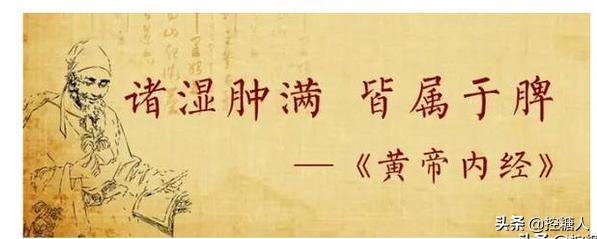 诸湿肿满 皆属于脾
—《黄帝内经》
头条 @控糖人